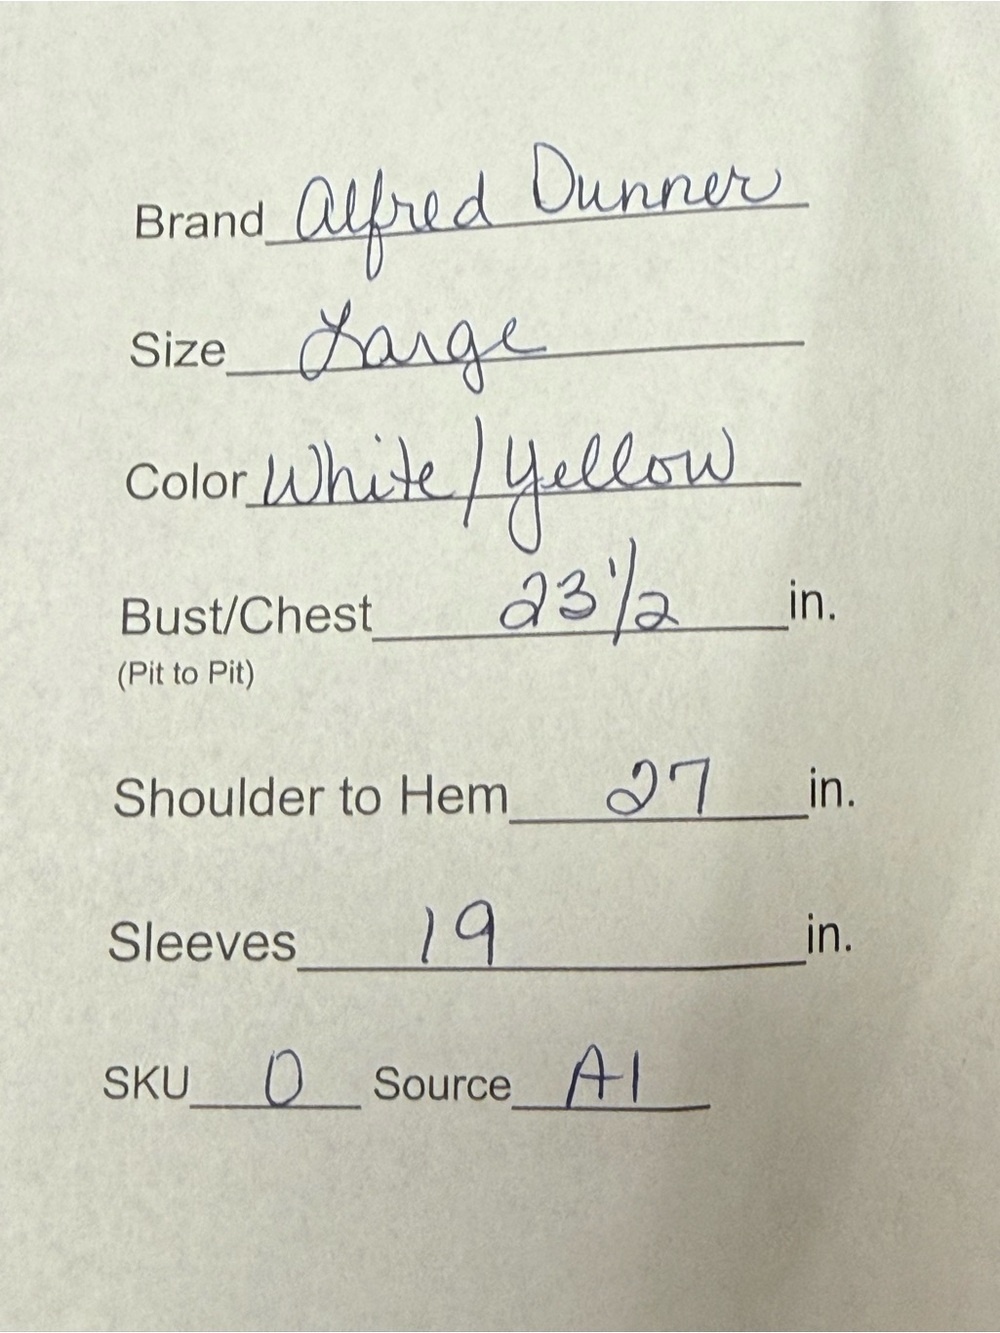 Brand Alfred Dunner
Size Large
Color White/Yellow
Bust/Chest 23 1/2 in.
(Pit to Pit)
Shoulder to Hem 27 in.
Sleeves 19 in.
SKU 0 Source A1